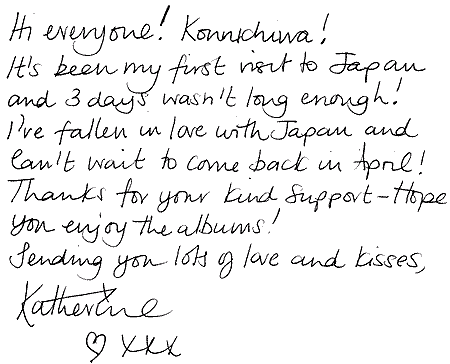 Hi everyone! Konnichiwa!
It's been my first visit to Japan
and 3 days wasn't long enough!
I've fallen in love with Japan and
can't wait to come back in April!
Thanks for your kind support - Hope
you enjoy the albums!
Sending you lots of love and kisses,
Katherine
♡ xxx